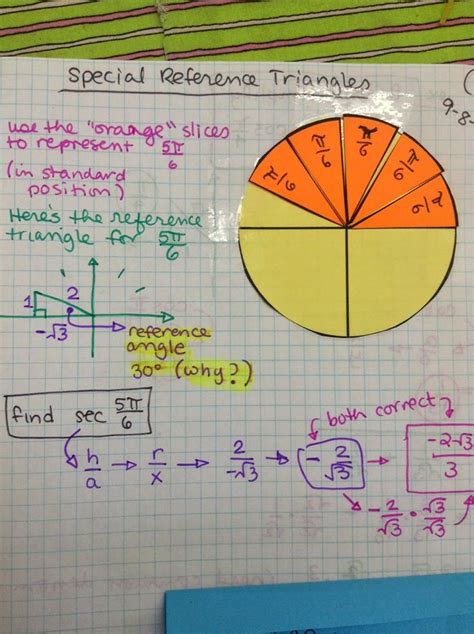 Special Reference Triangles
9-8-
use the "orange" slices
to represent 5π/6
(in standard
position)
Here's the reference
triangle for 5π/6
π/6 π/6 π/6 π/6 π/6
1 2
-√3
reference
angle
30° (why?)
both correct
find sec 5π/6
h/a → r/x → 2/-√3 → -2/√3 → -2√3/3
-2/√3 • √3/√3